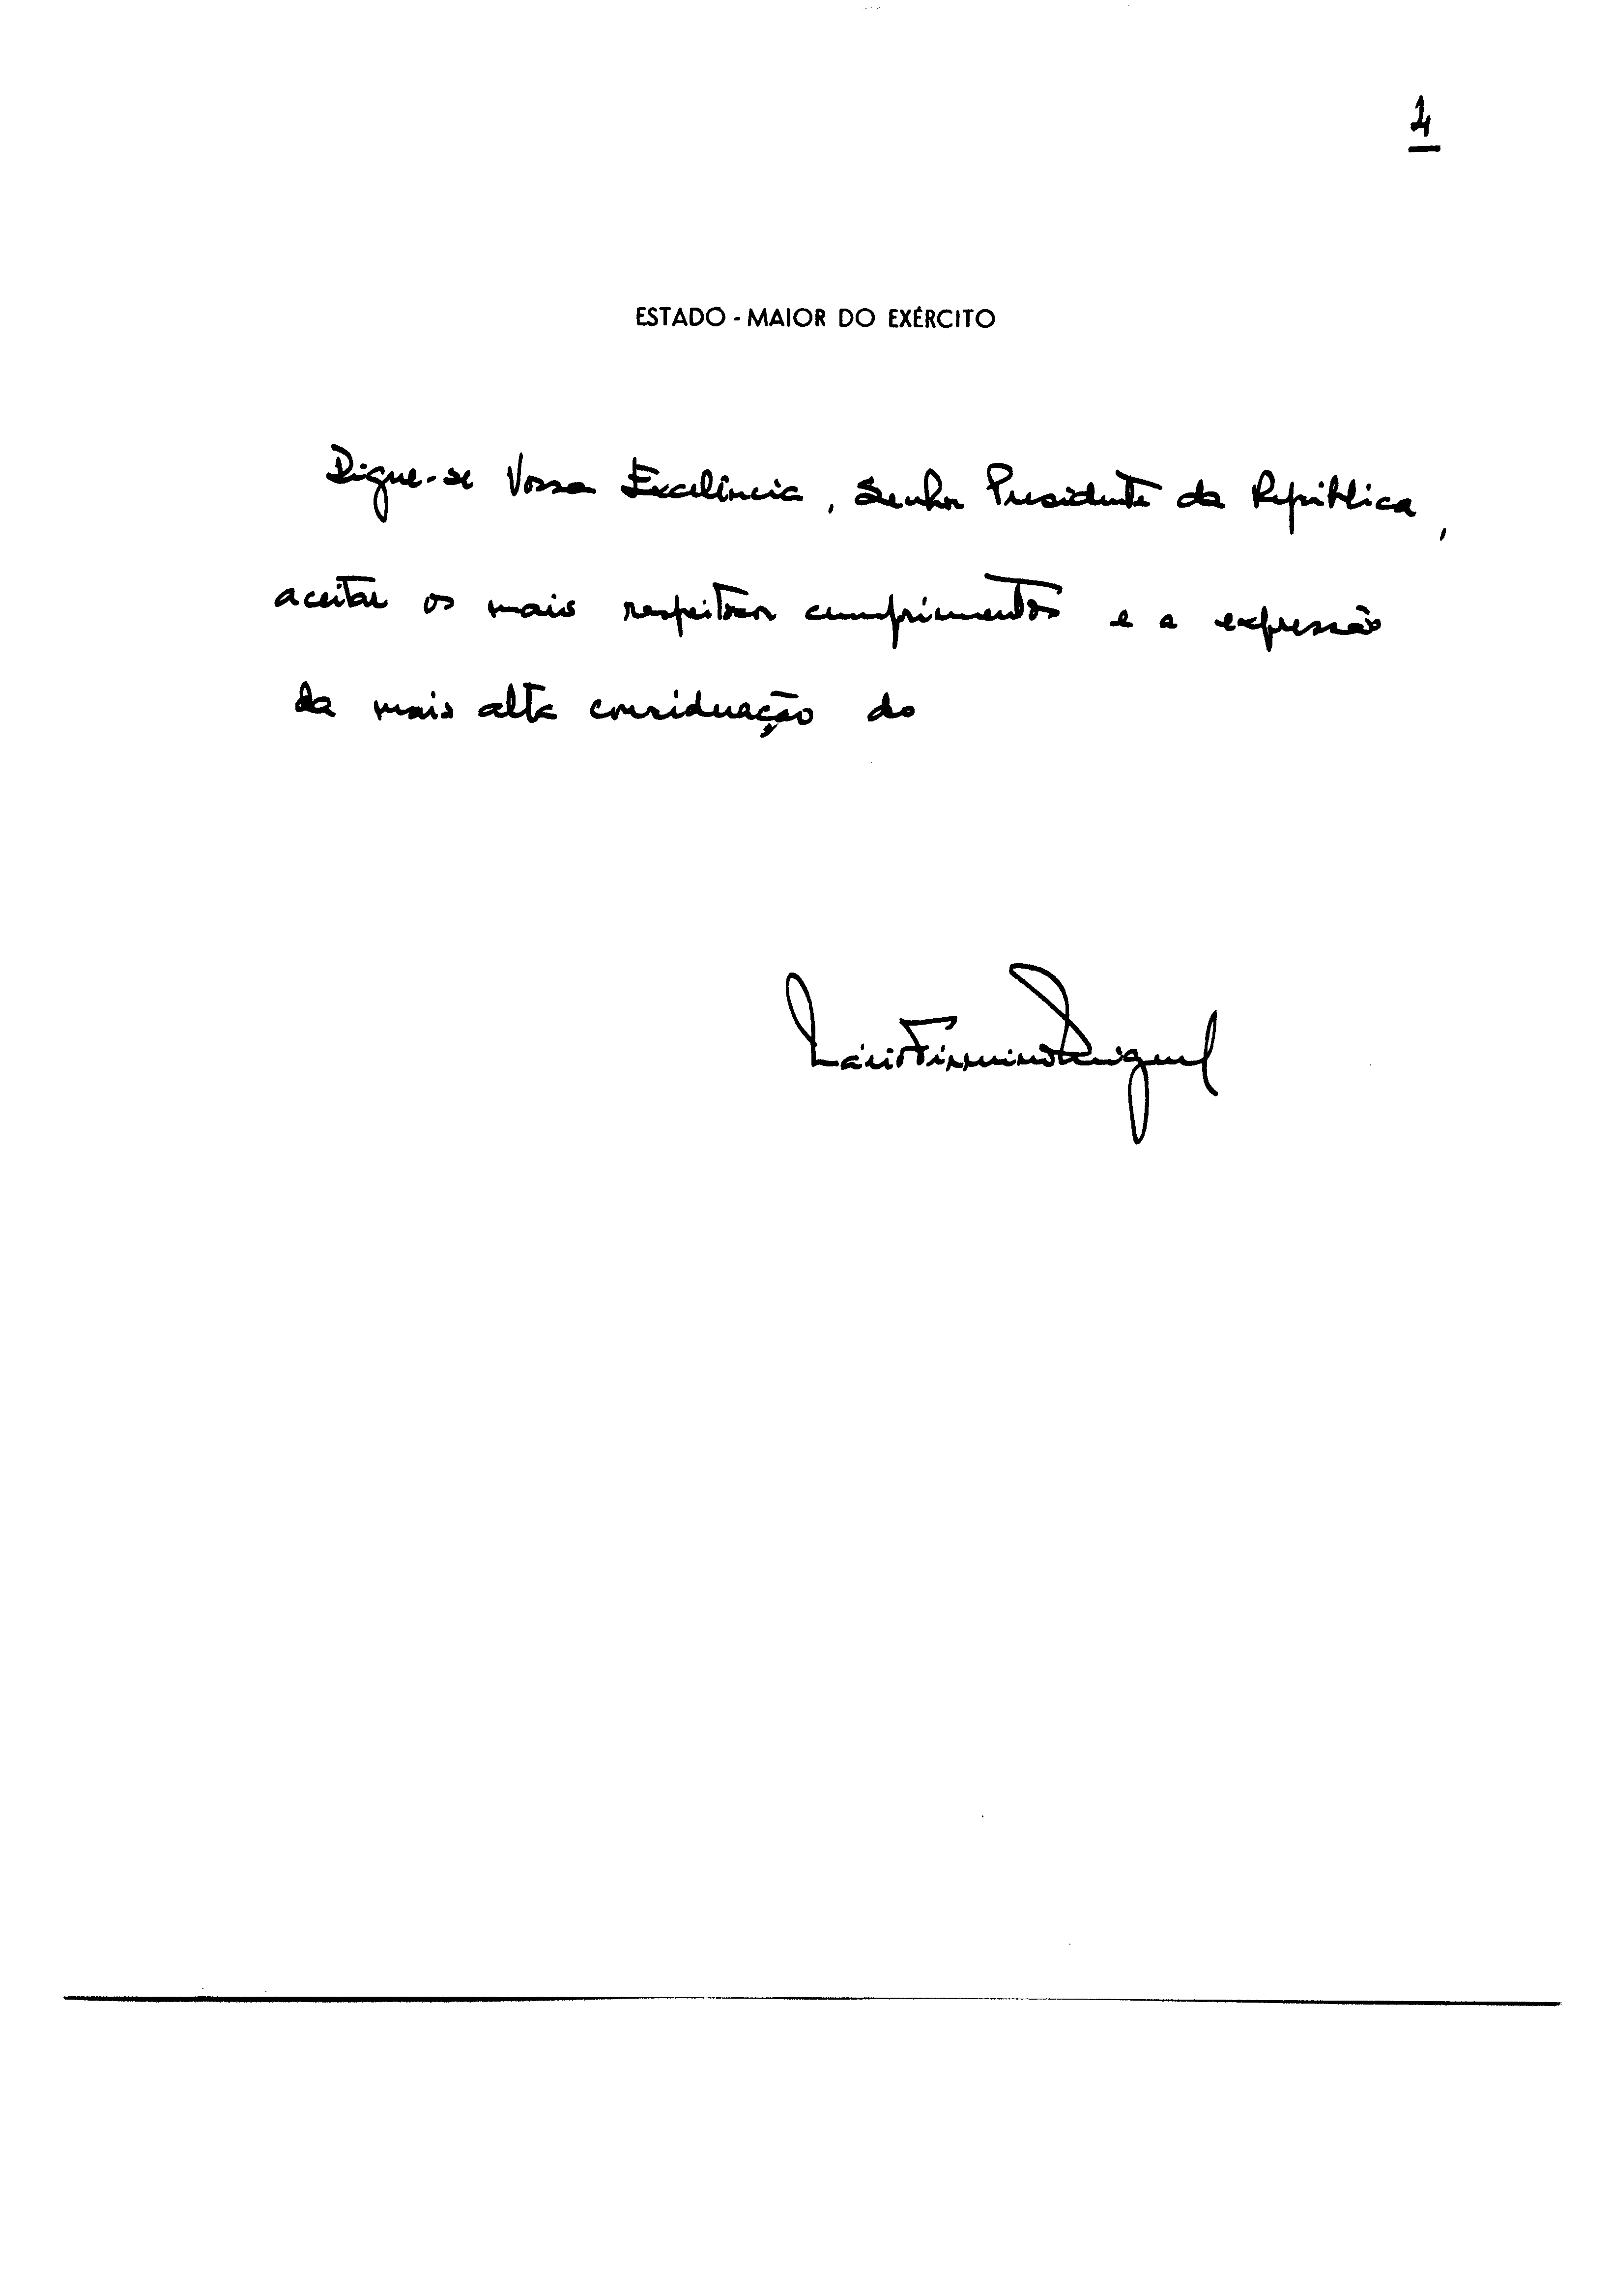 4
ESTADO - MAIOR DO EXÉRCITO
Digne-se Vossa Excelência, Senhor Presidente da República,
aceitar os mais respeitosos cumprimentos e a expressão
da mais alta consideração do
Mário Firmino Miguel